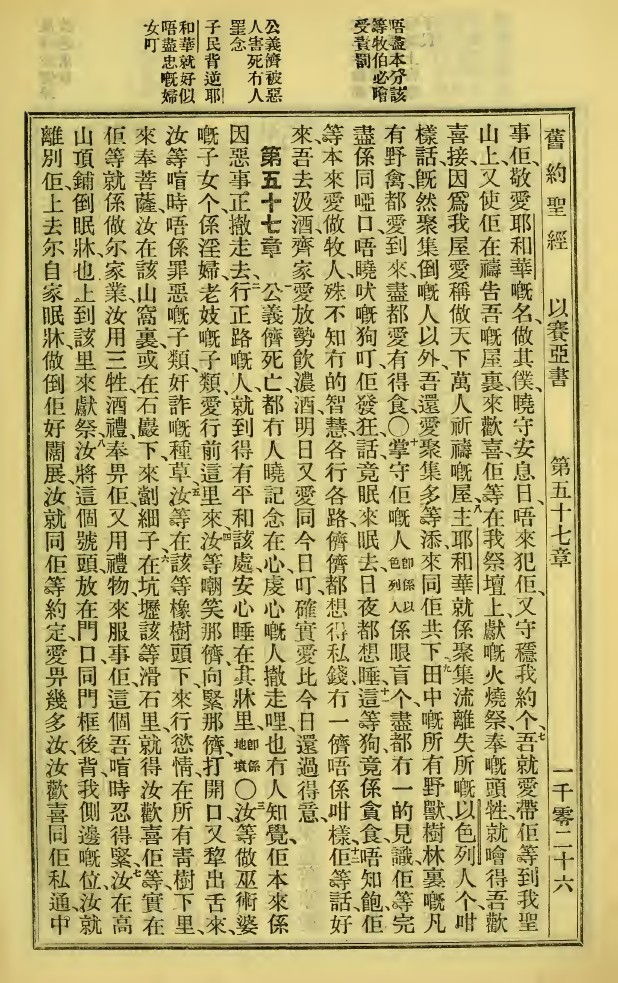 唔盡本分該
等牧伯必噲
受責罰
公義儕被惡
人害死冇人
罣念
子民背逆耶
和華就好似
唔盡忠嘅婦
女叮
舊約聖經 以賽亞書 第五十七章 一千零二十六
事佢、敬愛耶和華嘅名、做其僕、曉守安息日、唔來犯佢、又守穩我約个、七吾就愛帶佢等到我聖
山上、又使佢在禱告吾嘅屋裏來歡喜、佢等在我祭壇上獻嘅火燒祭、奉嘅頭牲、就噲得吾歡
喜接、因爲我屋愛稱做天下萬人祈禱嘅屋、八主耶和華就係聚集流離失所嘅以色列人个、咁
樣話、旣然聚集倒嘅人以外、吾還愛聚集多等添、來同佢共下、九田中嘅所有野獸、樹林裏嘅凡
有野禽、都愛到來、盡都愛有得食、〇十掌守佢嘅人卽係以色列人係眼盲个、盡都冇一的見識、佢等完
盡係同啞口唔曉吠嘅狗叮、佢發狂話、竟眠來眠去、日夜都想睡、十一這等狗竟係貪食唔知飽、佢
等本來愛做牧人、殊不知冇的智慧、各行各路、儕儕都想得私錢、冇一儕唔係咁樣、十二佢等話、好
來、吾去汲酒、齊家愛放勢飲濃酒、明日又愛同今日叮、確實愛比今日還過得意、
第五十七章 一公義儕死亡、都冇人曉記念在心、虔心嘅人撤走哩、也冇人知覺、佢本來係
因惡事正撤走去、二行正路嘅人、就到得有平和該處、安心睡在其牀里卽係地墳〇三汝等做巫術婆
嘅子女个、係淫婦老妓嘅子類、愛行前這里來、四汝等嘲笑那儕、向緊那儕打開口、又犂出舌來、
汝等唷時唔係罪惡嘅子類、奸詐嘅種草、五汝等在該等橡樹頭下來行慾情、在所有靑樹下里
來奉菩薩、汝在該山窩裏、或在石巖下來劏細子、六在坑壢該等滑石里、就得汝歡喜、佢等實在
佢等就係做尔家業、汝用三牲酒禮奉畀佢、又用禮物來服事佢、這個吾唷時忍得緊、七汝在高
山頂鋪倒眠牀、也上到該里來獻祭、八汝將這個號頭放在門口同門框後背、我側邊嘅位、汝就
離別佢、上去尔自家眠牀、做倒佢好闊展、汝就同佢等約定、愛畀幾多汝、汝歡喜同佢私通中